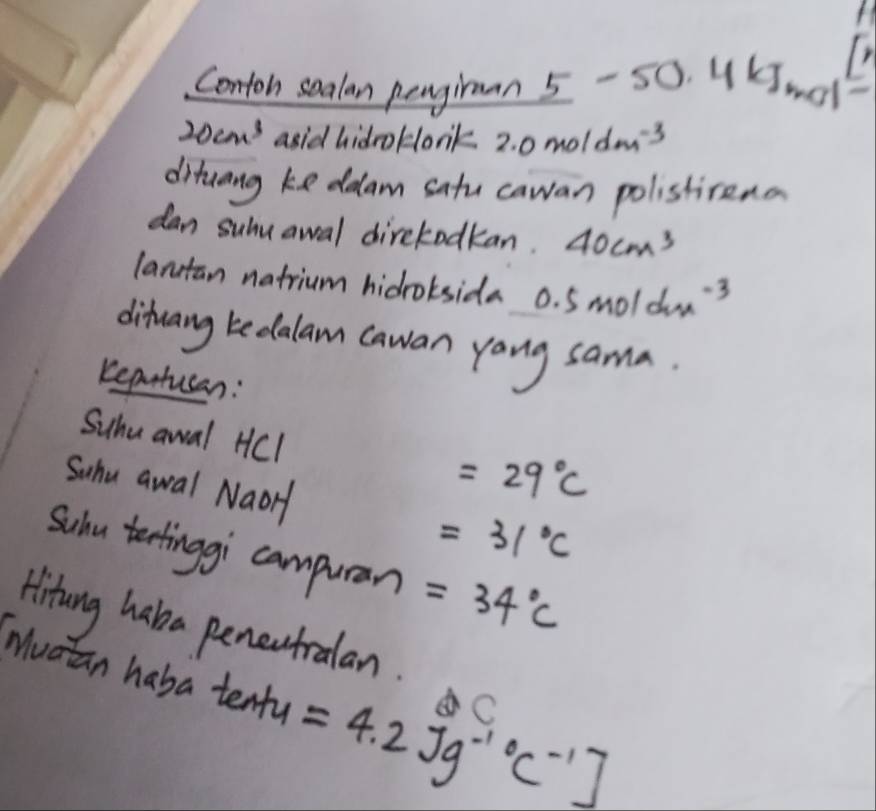 Contoh soalan pengiraan 5 - 50.4 kJ mol⁻
20cm³ asid hidroklorik 2.0 mol dm⁻³
dituang ke dalam satu cawan polistirena
dan suhu awal direkodkan. 40cm³
larutan natrium hidroksida 0.5 mol dm⁻³
dituang kedalam cawan yang sama.
Keputusan:
Suhu awal HCl = 29°C
Suhu awal NaOH = 31°C
Suhu tertinggi campuran = 34°C
Hitung haba peneutralan.
[Muatan haba tentu = 4.2 Jg⁻¹ °C⁻¹]
C